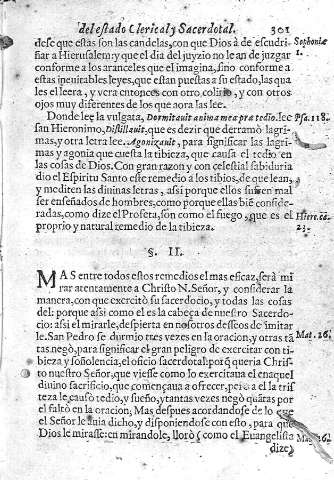 del estado Clerical, y Sacerdotal. 301
dese que estas son las candelas, con que Dios à de escudri- Sophoniæ
ñar a Hierusalem: y que el dia del juyzio no le an de juzgar 1.
conforme a los aranceles que el imagina, sino conforme a
estas ineuitables leyes, que estan puestas a su estado, las qua
les el leera, y vera entonces con otro colirio, y con otros
ojos muy diferentes de los que aora las lee.
Donde lee la vulgata, Dormitauit anima mea præ tedio. lee Psa. 118.
san Hieronimo, Distillauit. que es dezir que derramò lagri-
mas, y otra letra lee. Agonizauit, para significar las lagri-
mas y agonia que cuesta la tibieza, que causa el tedio en
las cosas de Dios. Con gran razon y con celestial sabiduria
dio el Espiritu Santo este remedio a los tibios, de que lean,
y mediten las diuinas letras, assi porque ellos suelen mal
ser enseñados de hombres, como porque ellas biē conside-
radas, como dize el Profeta, son como el fuego, que es el Hiere. ca.
proprio y natural remedio de la tibieza. 23.
§. II.
MAS entre todos estos remedios el mas eficaz, serà mi
rar atentamente a Christo N. Señor, y considerar la
manera, con que exercitò su sacerdocio, y todas las cosas
del: porque assi como el es la cabeça de nuestro Sacerdo-
cio: assi el mirarle, despierta en nosotros desseos de imitar
le. San Pedro se durmio tres vezes en la oracion, y otras tā Mat. 26.
tas negò, para significar el gran peligro de exercitar con ti-
bieza y soñolencia, el oficio sacerdotal: porq̄ queria Chris-
to nuestro Señor, que viesse como lo exercitaua el en aquel
diuino sacrificio, que començaua a ofrecer, pero a el la tris
teza le causò tedio, y sueño, y tantas vezes negò quātas por
el faltò en la oracion; Mas despues acordandose de lo que
el Señor le auia dicho, y disponiendose con esto, para que
Dios le mirasse: en mirandole, llorò; como el Euangelista Mat. 26.
dize;